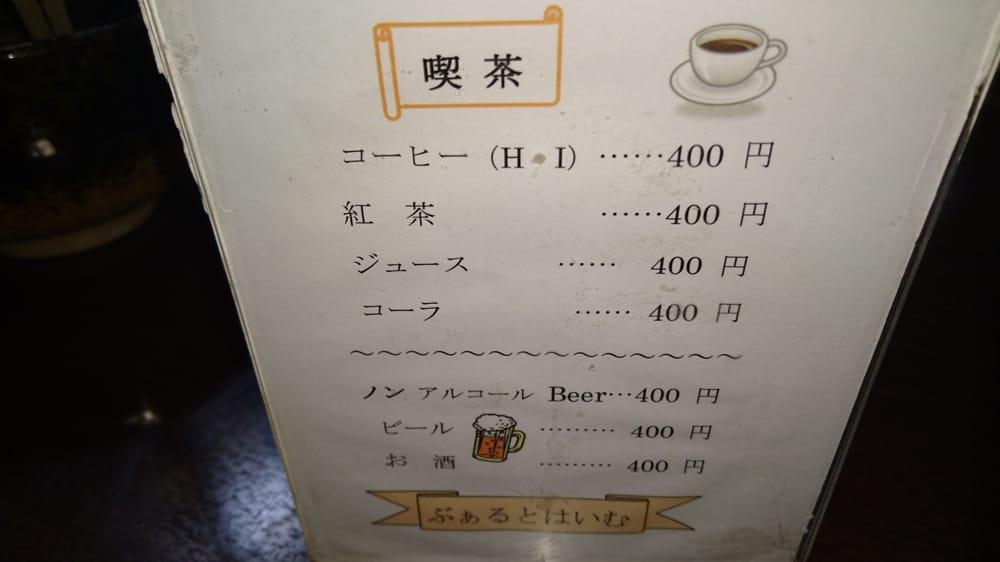 喫茶
コーヒー（H・I）……400 円
紅　茶　……400 円
ジュース　……　400 円
コーラ　……　400 円
～～～～～～～～～～～～～～
ノン アルコール Beer…400 円
ビール　………　400 円
お　酒　………　400 円
ぶぁるとはいむ